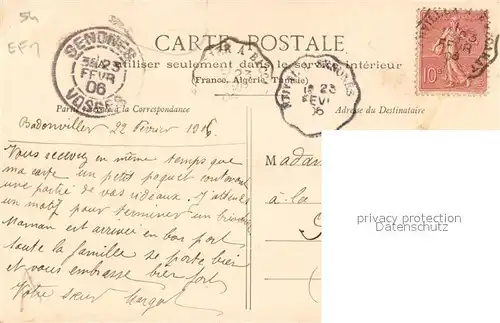 54
EF1
CARTE POSTALE
à utiliser seulement dans le service intérieur
(France, Algérie, Tunisie)
SENONES
3E/23
FEVR
06
VOSGES
SENONES
23
FEV
06
10c
Partie réservée à la Correspondance
Adresse du Destinataire
Badonviller 22 Février 1906
Vous recevrez en même temps que
ma carte un petit paquet contenant
une partie de vos rideaux. J'attends
un motif pour terminer un
Maman est arrivée en bon port
toute la famille se porte bien
et vous embrasse bien fort
Votre sœur Margot
Madam
à la
privacy protection
datenschutz